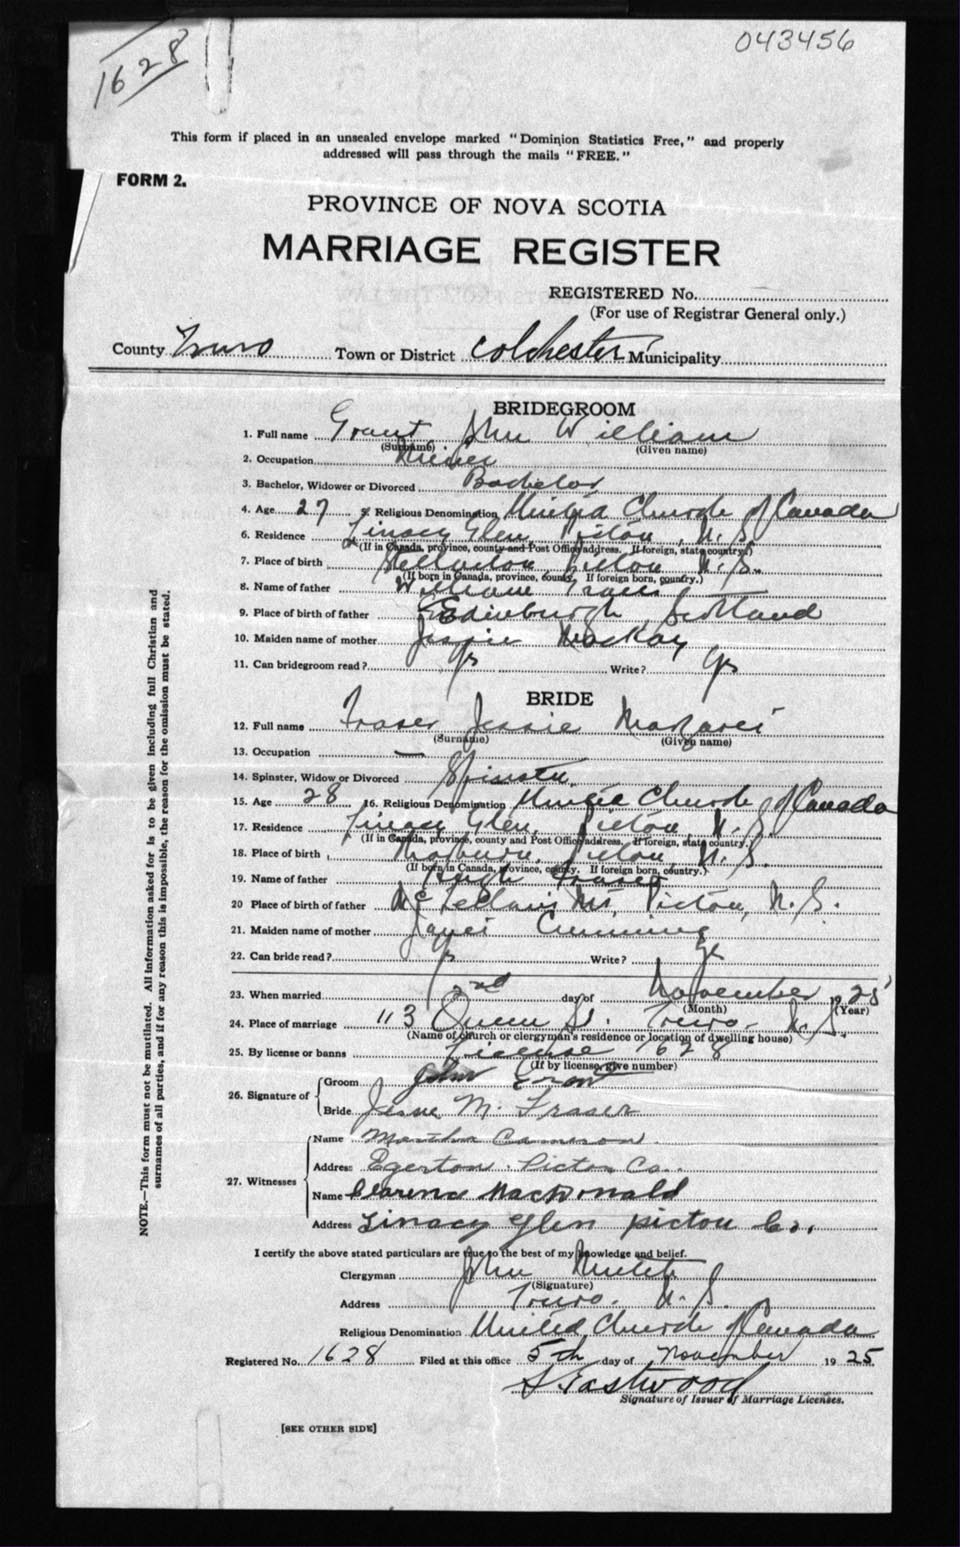 1628
043456
This form if placed in an unsealed envelope marked "Dominion Statistics Free," and properly
addressed will pass through the mails "FREE."
FORM 2.
PROVINCE OF NOVA SCOTIA
MARRIAGE REGISTER
REGISTERED No.
(For use of Registrar General only.)
County Truro Town or District Colchester Municipality
BRIDEGROOM
1. Full name Grant John William
(Surname) (Given name)
2. Occupation Miner
3. Bachelor, Widower or Divorced Bachelor
4. Age 27 5. Religious Denomination United Church of Canada
6. Residence Linacy Glen, Pictou, N.S.
(If in Canada, province, county and Post Office address. If foreign, state country.)
7. Place of birth Stellarton, Pictou, N.S.
(If born in Canada, province, county. If foreign born, country.)
8. Name of father William Grant
9. Place of birth of father Edinburgh, Scotland
10. Maiden name of mother Jessie MacKay
11. Can bridegroom read? Yes Write? Yes
BRIDE
12. Full name Fraser Jessie Margaret
(Surname) (Given name)
13. Occupation —
14. Spinster, Widow or Divorced Spinster
15. Age 28 16. Religious Denomination United Church of Canada
17. Residence Linacy Glen, Pictou, N.S.
(If in Canada, province, county and Post Office address. If foreign, state country.)
18. Place of birth Thorburn, Pictou, N.S.
(If born in Canada, province, county. If foreign born, country.)
19. Name of father Hugh Fraser
20 Place of birth of father McLellan's Mt, Pictou, N.S.
21. Maiden name of mother Cumming
22. Can bride read? Yes Write? Yes
23. When married 2nd day of November 1925
(Month) (Year)
24. Place of marriage 113 Queen St. Truro, N.S.
(Name of church or clergyman's residence or location of dwelling house)
25. By license or banns License 1628
(If by license, give number)
26. Signature of Groom John Grant
Bride Jessie M. Fraser
27. Witnesses
Name Martha Cameron
Address Egerton Pictou Co.
Name Clarence MacDonald
Address Linacy Glen Pictou Co.
I certify the above stated particulars are true to the best of my knowledge and belief.
Clergyman John
(Signature)
Address Truro. N.S.
Religious Denomination United Church of Canada
Registered No. 1628 Filed at this office 5th day of November 1925
S Eastwood
Signature of Issuer of Marriage Licenses.
[SEE OTHER SIDE]
NOTE.—This form must not be mutilated. All information asked for is to be given including full Christian and
surnames of all parties, and if for any reason this is impossible, the reason for the omission must be stated.